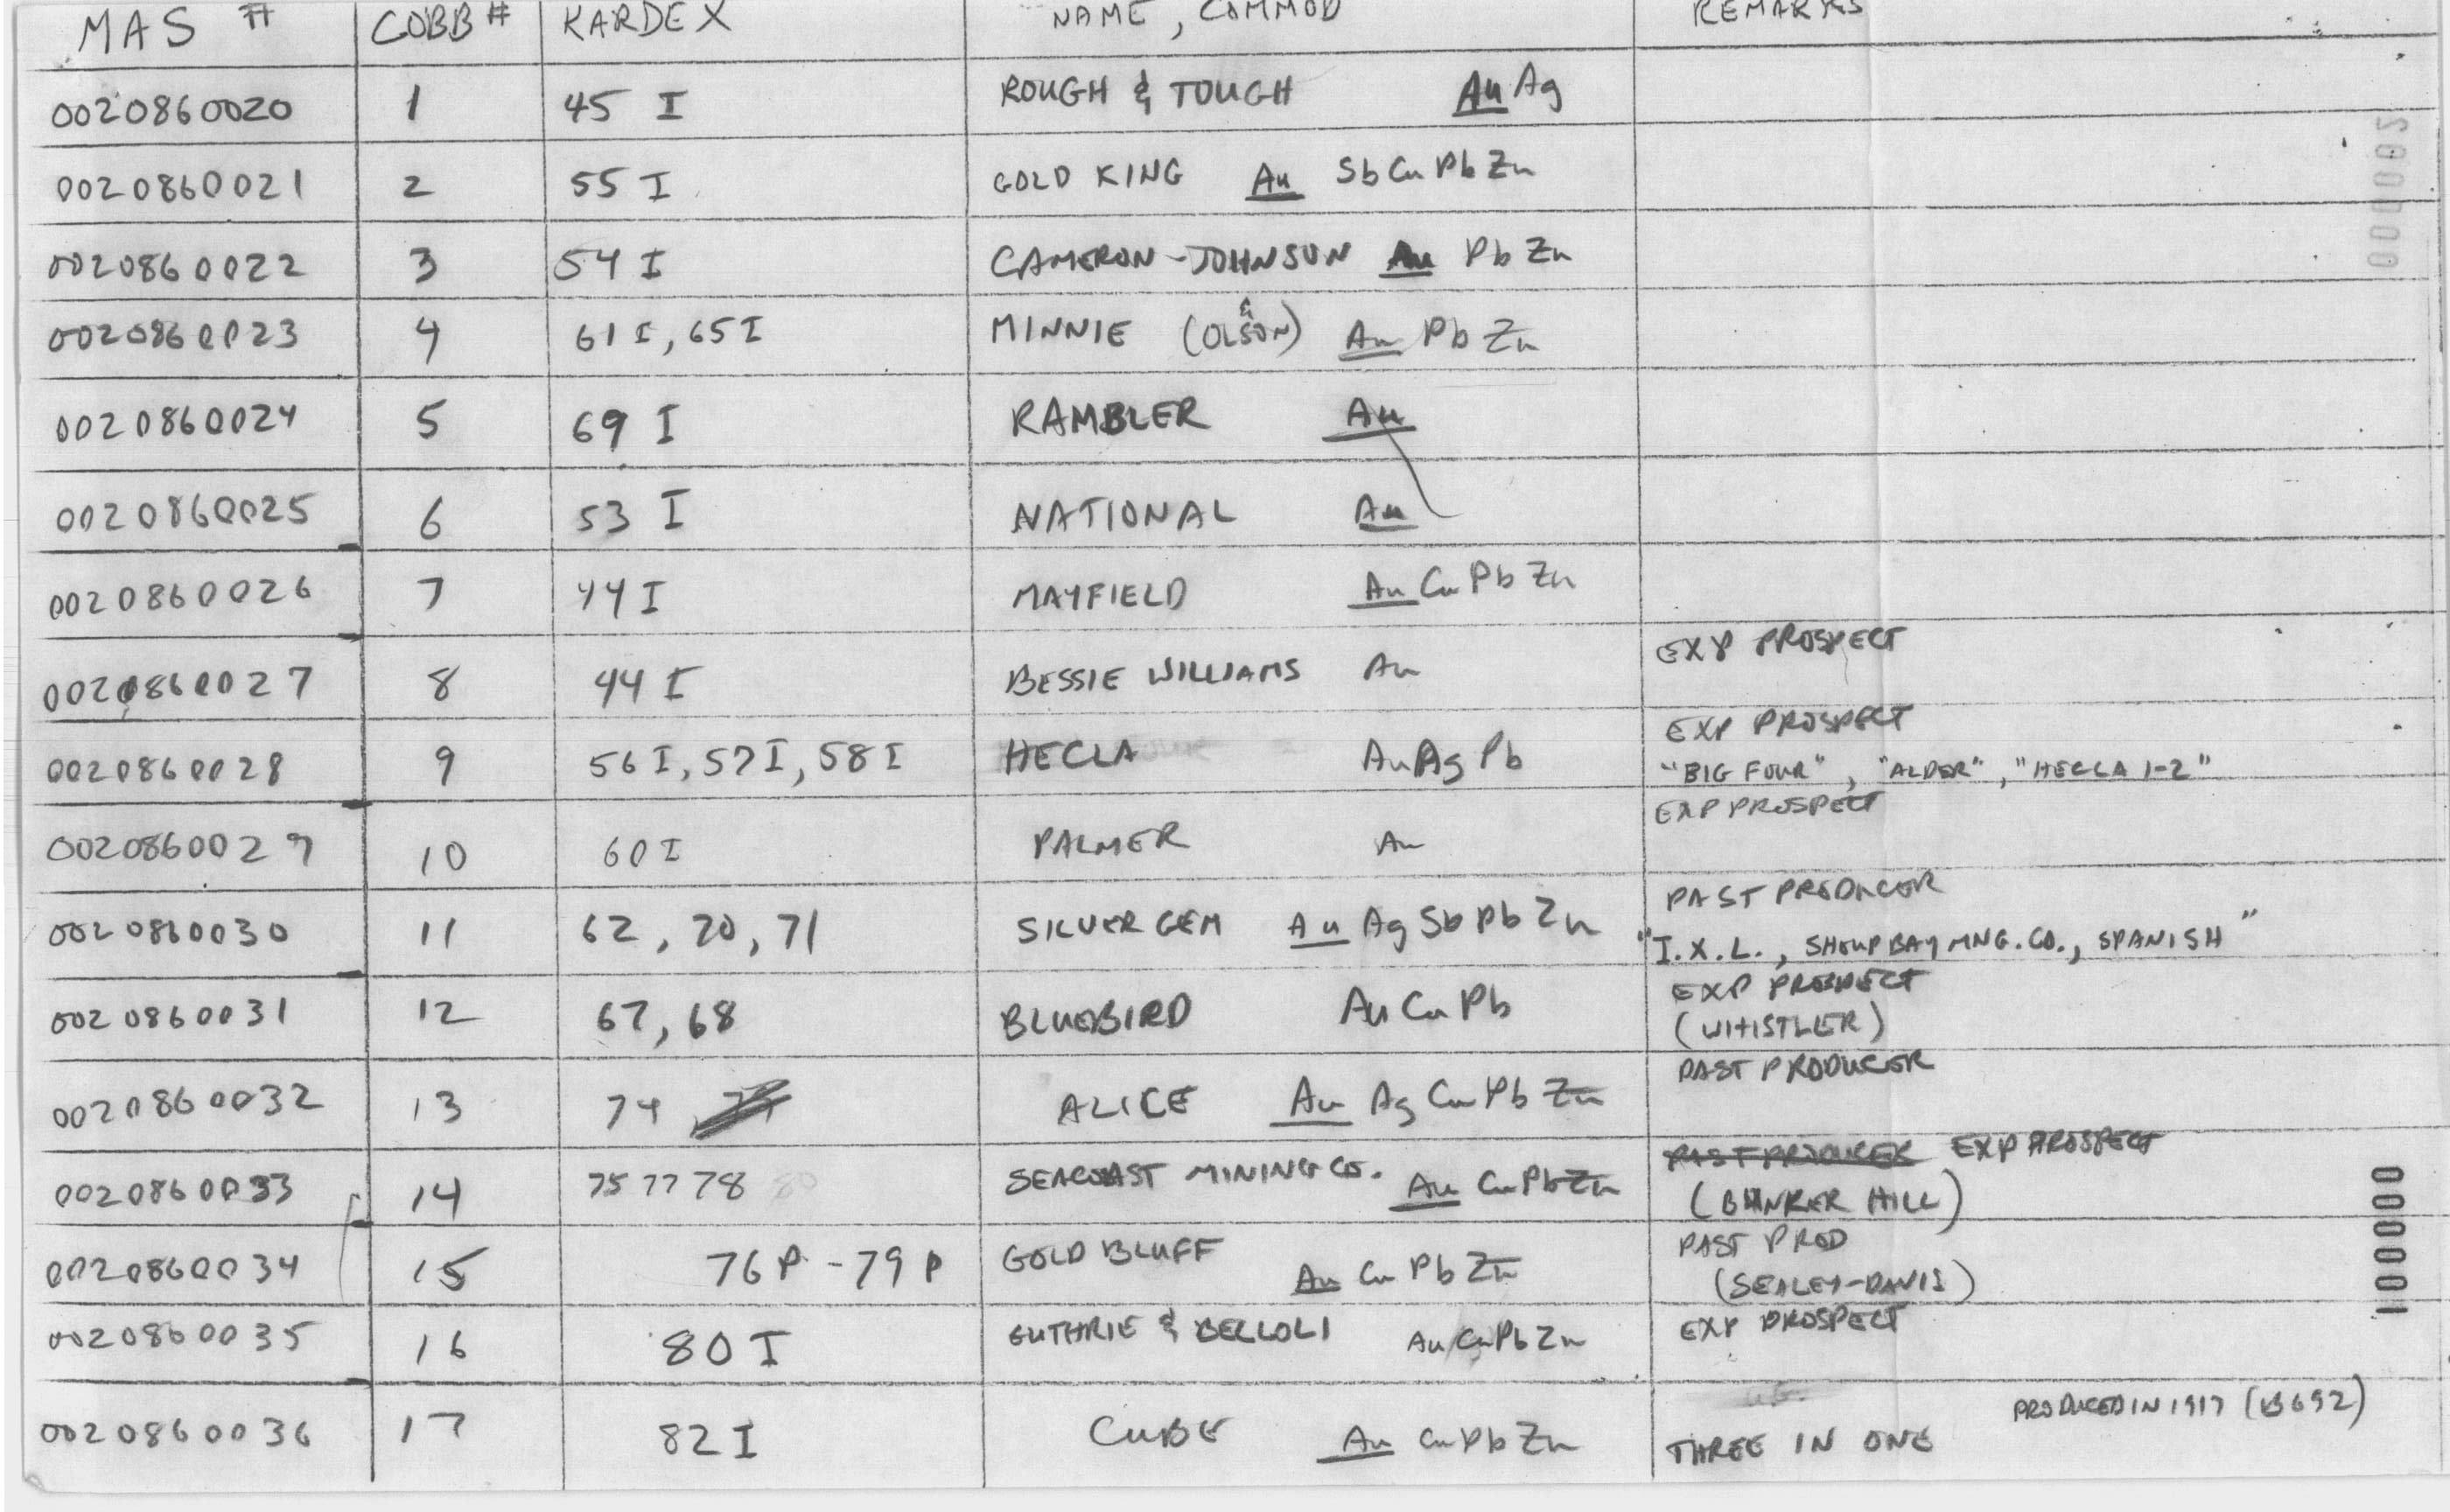 MAS # COBB # KARDEX NAME, COMMOD REMARKS
0020860020 1 45 I ROUGH & TOUGH Au Ag
0020860021 2 55 I GOLD KING Au Sb Cu Pb Zn
0020860022 3 54 I CAMERON-JOHNSON Au Pb Zn
0020860023 4 61 I, 65 I MINNIE (OLSON) Au Pb Zn
0020860024 5 69 I RAMBLER Au
0020860025 6 53 I NATIONAL Au
0020860026 7 44 I MAYFIELD Au Cu Pb Zn
0020860027 8 44 I BESSIE WILLIAMS Au EXP PROSPECT
0020860028 9 56 I, 57 I, 58 I HECLA Au Ag Pb EXP PROSPECT
"BIG FOUR", "ALDER", "HECLA 1-2"
0020860029 10 60 I PALMER Au EXP PROSPECT
0020860030 11 62, 70, 71 SILVER GEM Au Ag Sb Pb Zn PAST PRODUCER
"I.X.L., SHOUP BAY MNG. CO., SPANISH"
0020860031 12 67, 68 BLUEBIRD Au Cu Pb EXP PROSPECT
(WHISTLER)
0020860032 13 74 ALICE Au Ag Cu Pb Zn PAST PRODUCER
0020860033 14 75 77 78 80 SEACOAST MINING CO. Au Cu Pb Zn PAST PRODUCER EXP PROSPECT
(BUNKER HILL)
0020860034 15 76 P - 79 P GOLD BLUFF Au Cu Pb Zn PAST PROD
(SEALEY-DAVIS)
0020860035 16 80 I GUTHRIE & BELLOLI Au Cu Pb Zn EXP PROSPECT
0020860036 17 82 I CUBE Au Cu Pb Zn PRODUCED IN 1917 (B692)
THREE IN ONE
000002
000001